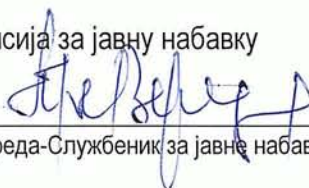 сија за јавну набавку
реда-Службеник за јавне набав